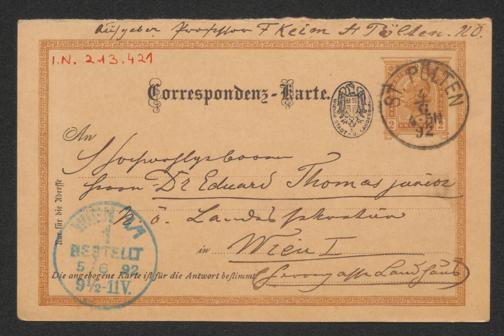 Aufgeber Professor F Keim St Pölten. N.Ö.
I.N. 213.421
Correspondenz-Karte.
ST. PÖLTEN
4
6
92
2
An
Hochwohlgeboren
Herrn Dr Eduard Thomas junior
N. ö. Landes
in Wien I
Herrengasse Landhaus
Nur für die Adresse
Die angebogene Karte ist für die Antwort bestimmt
WIEN 1/1
1
BESTELLT
5 6 92
9½-11V.